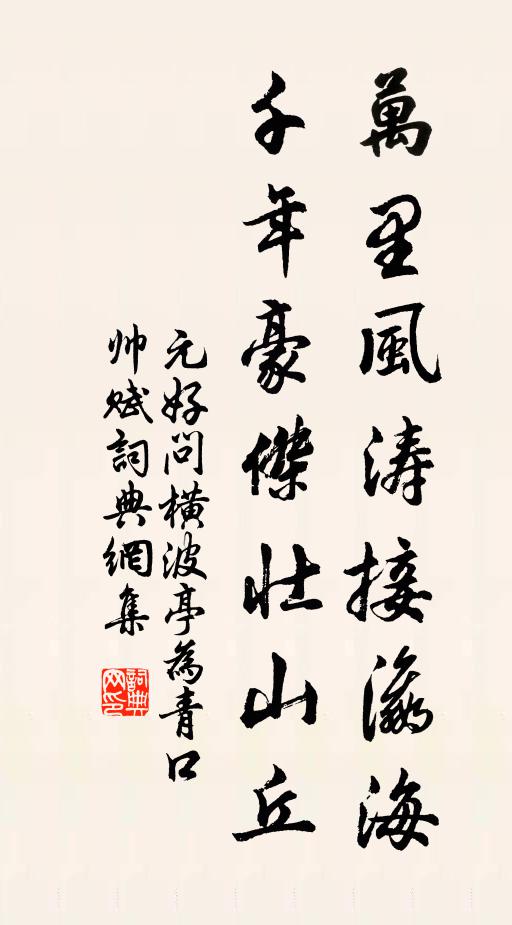 萬里風涛接瀛海
千年豪傑壯山丘
元好问横波亭為青口
帅赋詞典網集
詞典网印